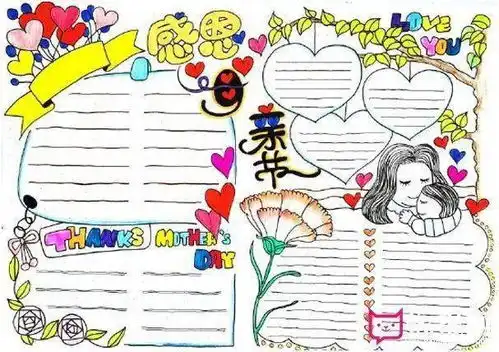 感恩
母亲节
LOVE
YOU
THANKS MOTHER'S
DAY